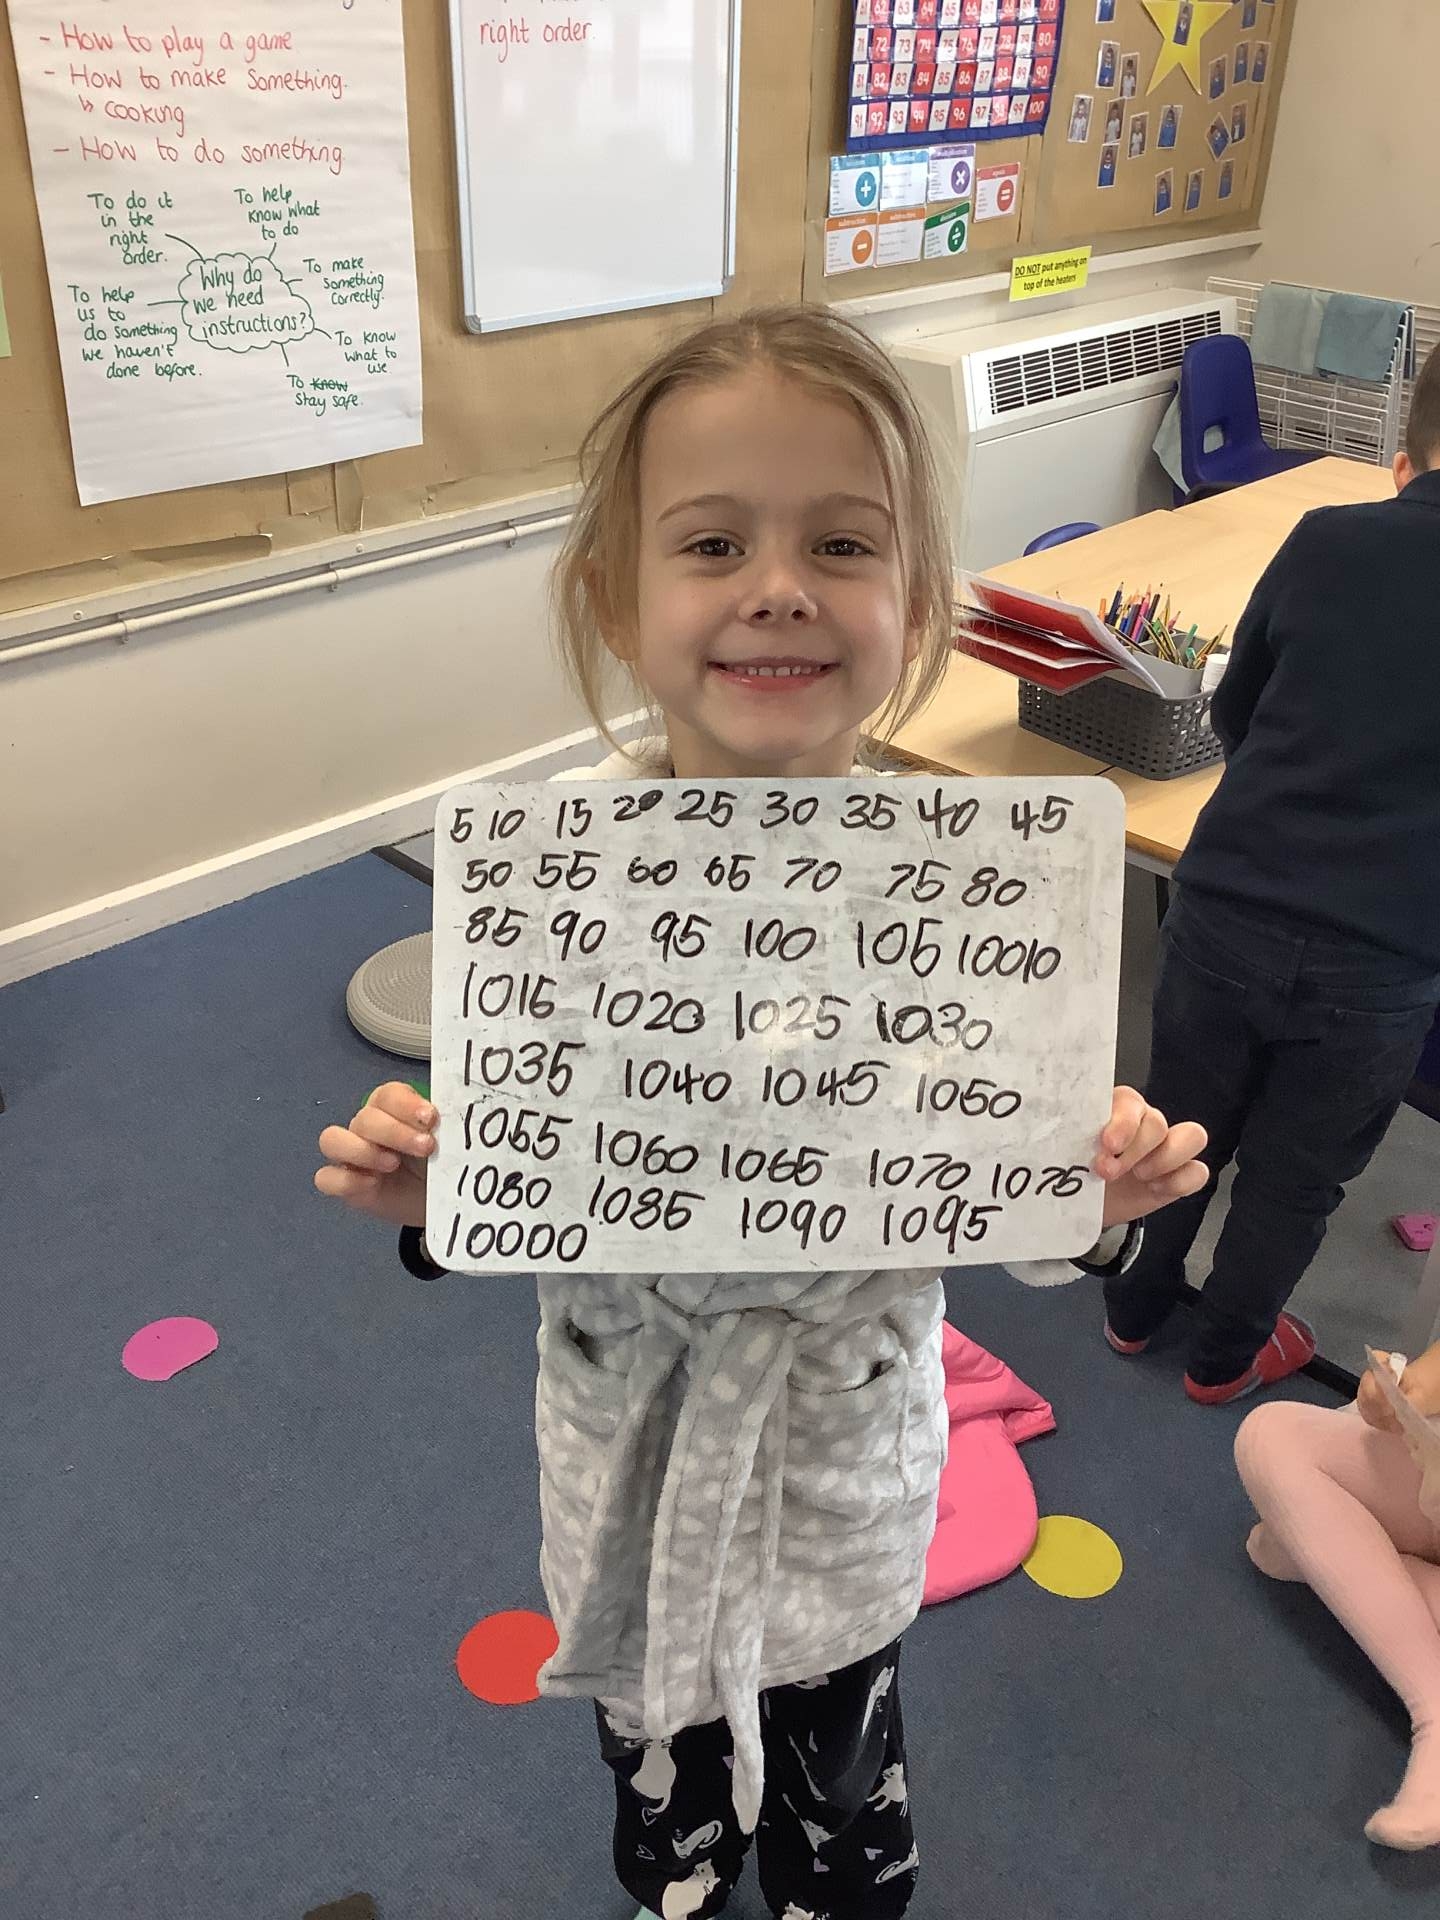 - How to play a game
- How to make something.
↳ cooking
- How to do something
To do it
in the
right
order.
To help
know what
to do
To make
something
correctly.
To know
what to
use
To know
Stay safe.
To help
us to
do something
we haven't
done before.
Why do
we need
instructions?
right order.
61 62 63 64 65 66 67 68 69 70
71 72 73 74 75 76 77 78 79 80
81 82 83 84 85 86 87 88 89 90
91 92 93 94 95 96 97 98 99 100
subtraction
DO NOT put anything on
top of the heaters
5 10 15 20 25 30 35 40 45
50 55 60 65 70 75 80
85 90 95 100 105 10010
1015 1020 1025 1030
1035 1040 1045 1050
1055 1060 1065 1070 1075
1080 1085 1090 1095
10000